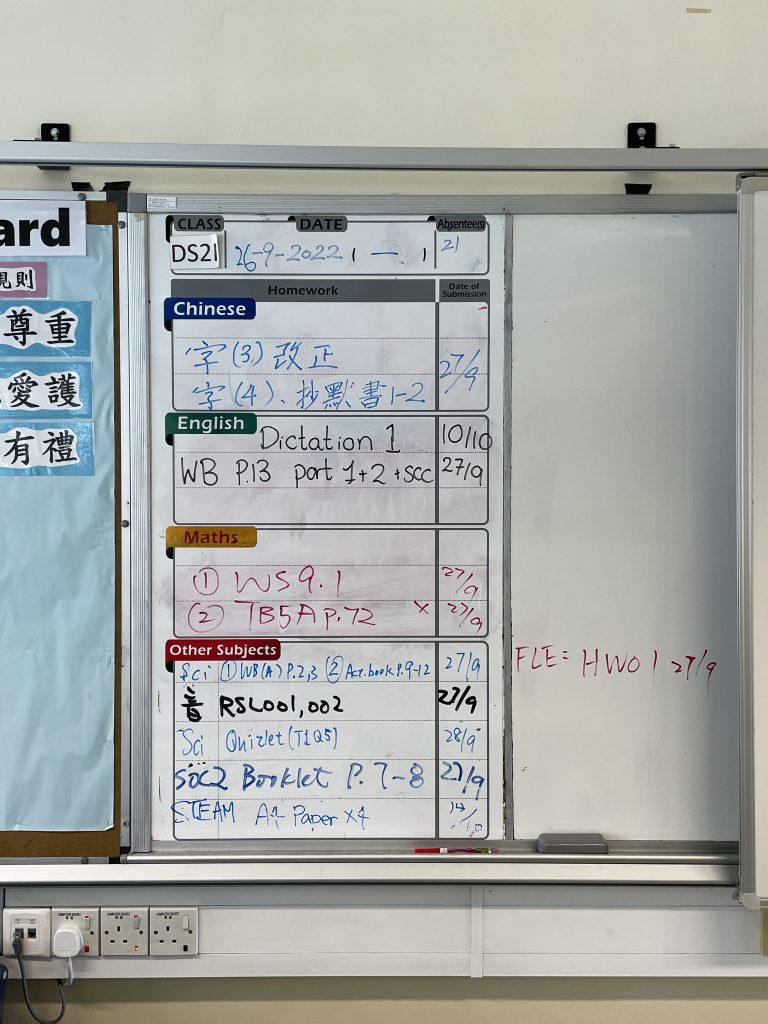 ard
規則
尊重
愛護
有禮
CLASS DATE Absentee(s)
DS21 26-9-2022 (一) 21
Homework Date of Submission
Chinese
字(3)改正
字(4)、抄默書1-2 27/9
English
Dictation 1 10/10
WB P.13 part 1+2 +scc 27/9
Maths
① WS9.1 27/9
② TB5A p.72 x 27/9
Other Subjects
Sci ①WB(A) P.2,3 ②Act.book P.9-12 27/9
FLE= HW01 27/9
音 RSL001,002 27/9
Sci Quizlet(T1Q5) 28/9
SOC2 Booklet P. 7-8 27/9
STEAM A4 Paper x4
COMPUTER SOCKET
COMPUTER SOCKET
COMPUTER SOCKET